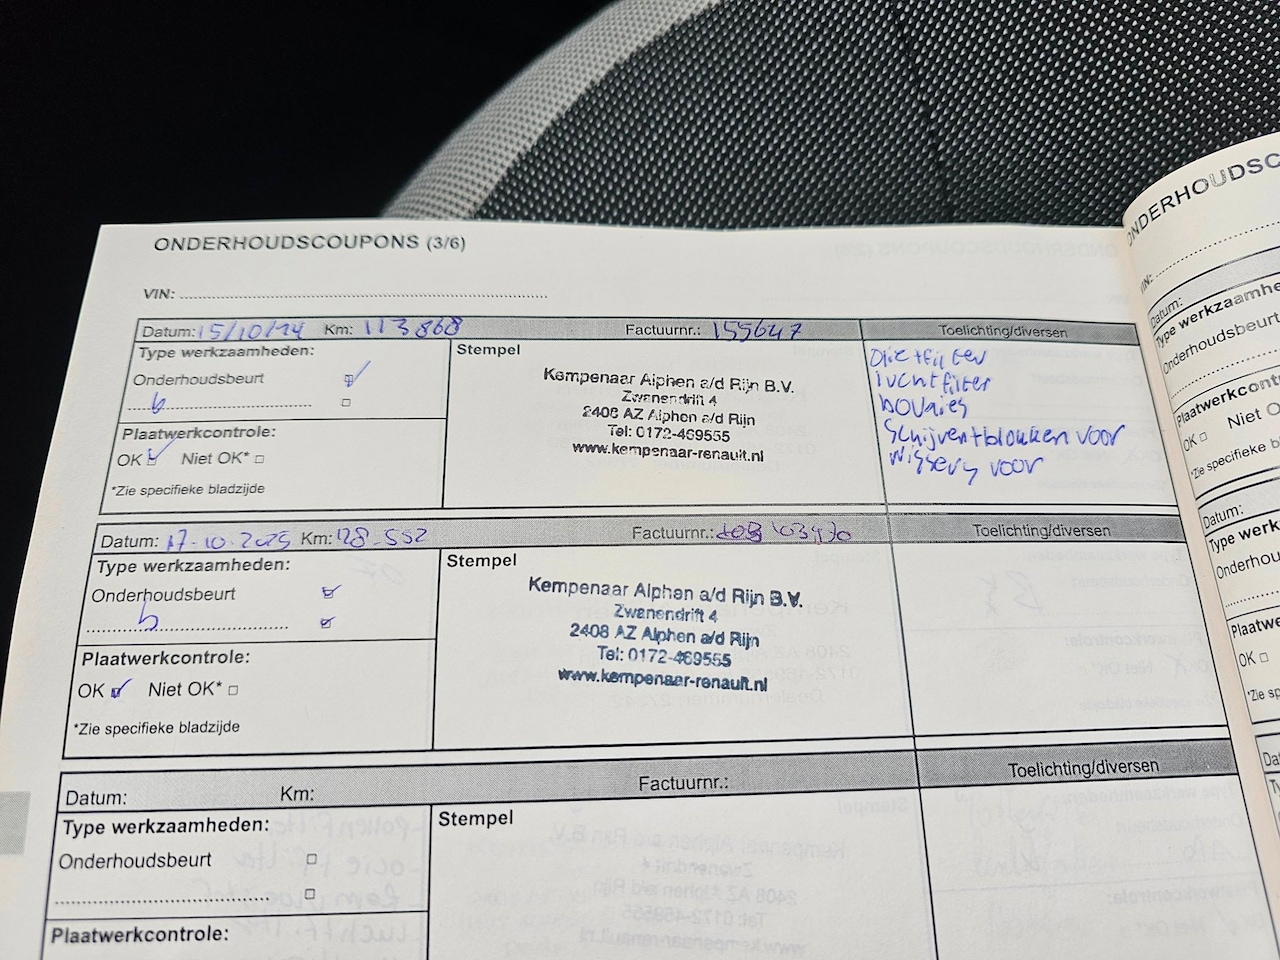 ONDERHOUDSCOUPONS (3/6)
VIN:
Datum: 15/10/24 Km: 113868 Factuurnr.: 155647 Toelichting/diversen
Type werkzaamheden:
Onderhoudsbeurt
b
Plaatwerkcontrole:
OK Niet OK*
*Zie specifieke bladzijde
Stempel
Kempenaar Alphen a/d Rijn B.V.
Zwanendrift 4
2408 AZ Alphen a/d Rijn
Tel: 0172-469555
www.kempenaar-renault.nl
Oliefilter
luchtfilter
bougies
voor
voor
Datum: 17-10-2025 Km: 128-552 Factuurnr.: Toelichting/diversen
Type werkzaamheden:
Onderhoudsbeurt
b
Plaatwerkcontrole:
OK Niet OK*
*Zie specifieke bladzijde
Stempel
Kempenaar Alphen a/d Rijn B.V.
Zwanendrift 4
2408 AZ Alphen a/d Rijn
Tel: 0172-469555
www.kempenaar-renault.nl
Datum: Km: Factuurnr.: Toelichting/diversen
Type werkzaamheden:
Onderhoudsbeurt
Plaatwerkcontrole:
Stempel
ONDERHOUDSC
VIN:
Datum:
Type werkzaamhe
Onderhoudsbeurt
Plaatwerkcontr
OK Niet OK
*Zie specifieke b
Datum:
Type werk
Onderhou
Plaatwe
OK
*Zie sp
Da